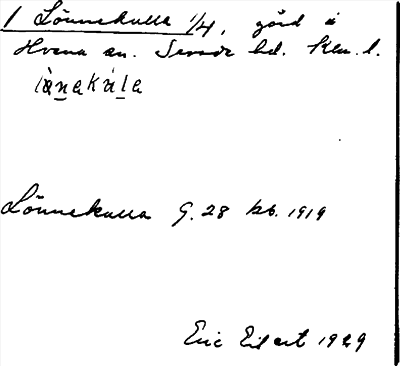 1 Lönnekulla 1/4, gård i
Hvena sn. Sevede hd. Klm. l.
Lönnekulla G. 28 kb. 1919
Eric Eilert 1929